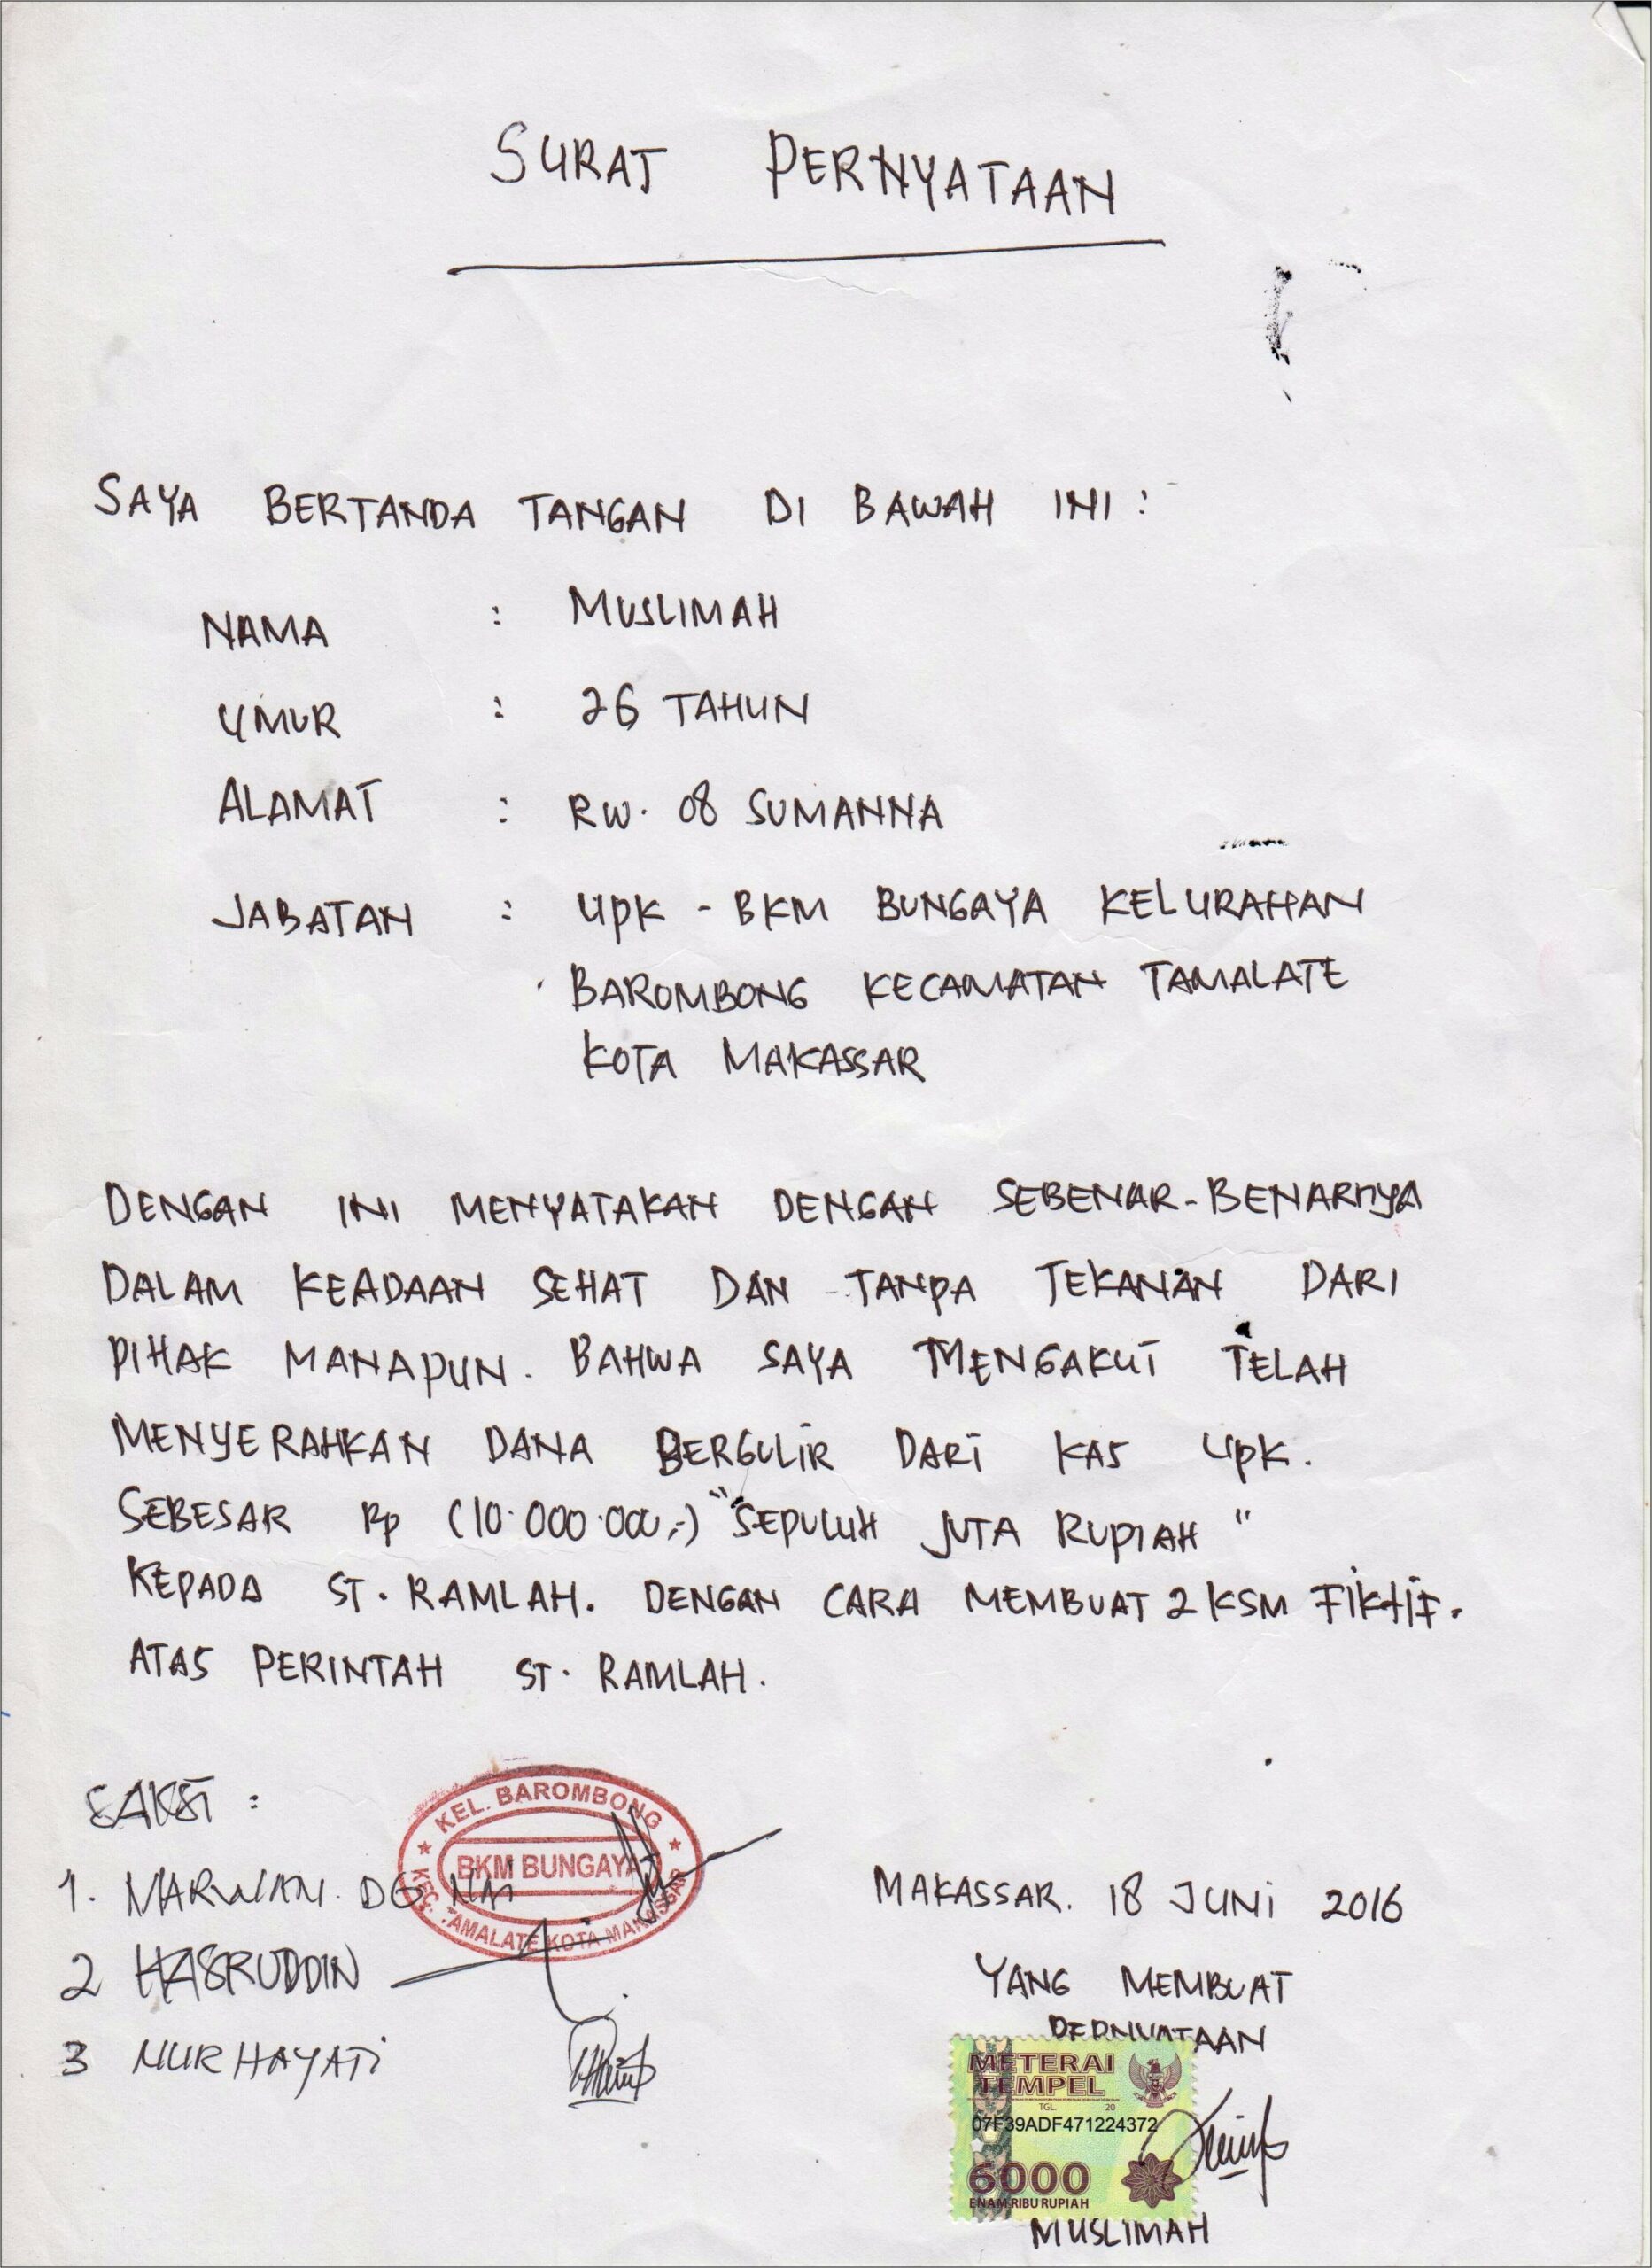 SURAT PERNYATAAN
SAYA BERTANDA TANGAN DI BAWAH INI :
NAMA : MUSLIMAH
UMUR : 26 TAHUN
ALAMAT : RW. 08 SUMANNA
JABATAN : UPK - BKM BUNGAYA KELURAHAN
BAROMBONG KECAMATAN TAMALATE
KOTA MAKASSAR
DENGAN INI MENYATAKAN DENGAN SEBENAR-BENARNYA
DALAM KEADAAN SEHAT DAN TANPA TEKANAN DARI
PIHAK MANAPUN. BAHWA SAYA MENGAKUI TELAH
MENYERAHKAN DANA BERGULIR DARI KAS UPK.
SEBESAR Rp (10.000.000,-) "SEPULUH JUTA RUPIAH"
KEPADA ST. RAMLAH. DENGAN CARA MEMBUAT 2 KSM FIKTIF.
ATAS PERINTAH ST. RAMLAH.
SAKSI :
KEL. BAROMBONG
BKM BUNGAYA
KEC. TAMALATE KOTA MAKASSAR
1. MARWAN. DG
2 HASRUDDIN
3 NURHAYATI
MAKASSAR. 18 JUNI 2016
YANG MEMBUAT
PERNYATAAN
METERAI
TEMPEL
TGL. 20
07F39ADF471224372
6000
ENAM RIBU RUPIAH
MUSLIMAH